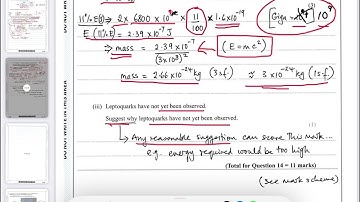 11% E(J) → 2 x 6800 x 10⁹ x 11/100 x 1.6 x 10⁻¹⁹
[Giga = 10⁹]
E (11% E) = 2.39 x 10⁻⁷ J
→ mass = 2.39 x 10⁻⁷ / (3 x 10⁸)² ← (E = mc²)
mass = 2.66 x 10⁻²⁴ kg (3sf) ≈ 3 x 10⁻²⁴ kg (1sf)
(iii) Leptoquarks have not yet been observed.
Suggest why leptoquarks have not yet been observed.
(1)
→ Any reasonable suggestion can score this mark...
e.g. energy required would be too high
(Total for Question 14 = 11 marks)
(see mark scheme)